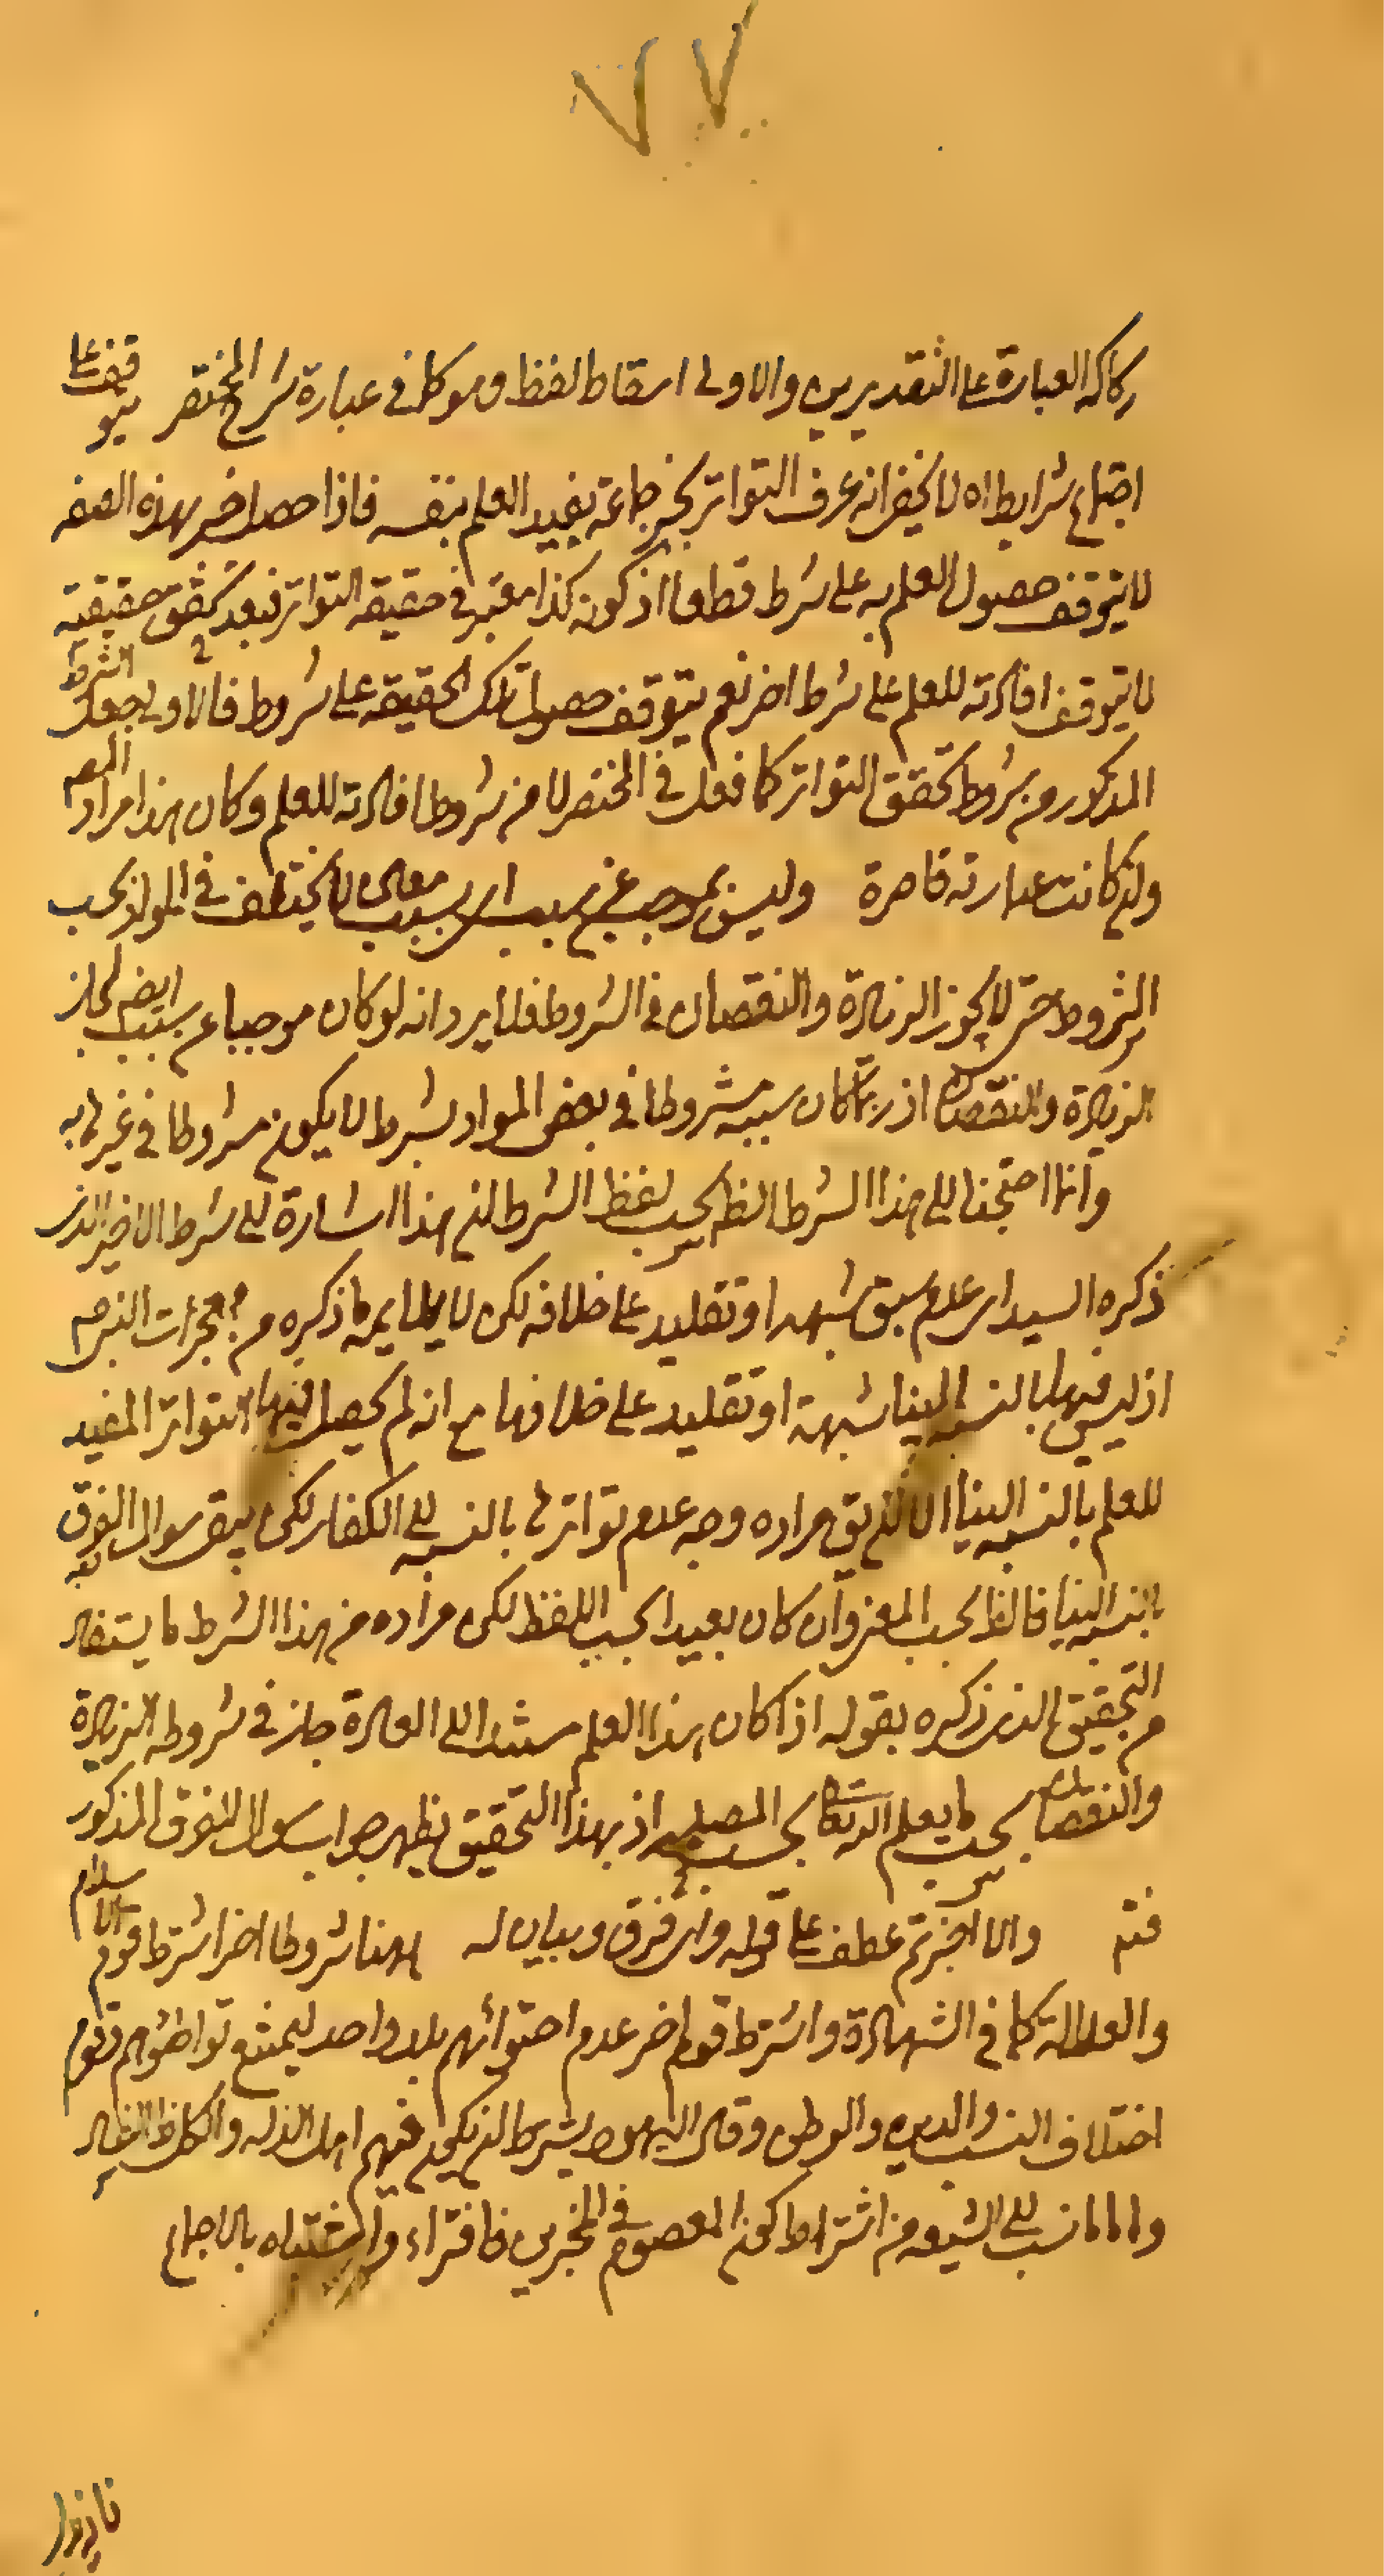 ٧٧
ركاكه العبارة على التقديرين والاولى اسقاط لفظ وهو كما في عبارة شرح المختصر يتوقف على
اجتماع شرايط اه لا يخفى انه عرف التواتر بخبر جماعة يفيد العلم بنفسه فاذا حصل خبر بهذه الصفه
لا يتوقف حصول العلم به على شرط قطعا اذ كونه كذا معتبر في حقيقه التواتر فبعد تحقق حقيقته
لا يتوقف افادته للعلم على شرط اخر نعم يتوقف حصول تلك الحقيقه على شروط فالاولى جعل الشرط
المذكور من شروط تحقق التواتر كما فعل في المختصر لا من شروط افادته للعلم وكان هذا مراد المصـ
وان كانت عبارته قاصرة وليس بموجب عن سبب اى بسبب معنى لا يختلف في المواد بحسب
الشروط حتى لا يجوز الزيادة والنقصان في الشروط فلا يرد انه لو كان موجبا عن سبب ايضـ لجاز
الزيادة والنقصان اذ ربما كان سببه مشروطا في بعض المواد بشرط لا يكون مشروطا في غيرها به
وانما احتجنا الى هذا الشرط الظـ بحسب لفظ الشرط ان هذا اشارة الى شرط الاخير الذى
ذكره السيد اى عدم سبق شبهه او تقليد على خلافه لكن لا يلايمه ما ذكره من معجزات النبى صـ
اذ ليس فيها بالنسبه الينا شبهة او تقليد على خلافها مع انه لم يحصل فيها التواتر المفيد
للعلم بالنسبه الينا الا ان يقـ مراده وجه عدم تواترها بالنسبه الى الكفار لكن يبقى سوال الفرق
بالنسبه الينا فالظـ بحسب المعنى وان كان بعيدا بحسب اللفظ لكن مراده من هذا الشرط ما يستفاد
من التحقيق الذى ذكره بقوله اذا كان هذا العلم مستندا الى العادة جاز في شروطه الزيادة
والنقصان بحسب ما يعلم الله تعالى بحسب المصلحه اذ بهذا التحقيق يظهر جواب سوال الفرق المذكور
فتم والا اخبرتم عطف على قوله واى فرق وبيان له ههنا شروط اخر اشترط قوم الاسلام
والعدالة كما في الشهادة واشترط قوم اخر عدم احتوائهم بلد واحد ليمتنع تواطؤهم وقوم
اختلاف النسب والدين والوطن وقال اليهود بشرط ان يكون فيهم اهل الذله والكل ظـ الفساد
واما ما نسب الى الشيعه من اشتراط كون المعصوم في المخبرين فافتراء واشتباه بالاجماع